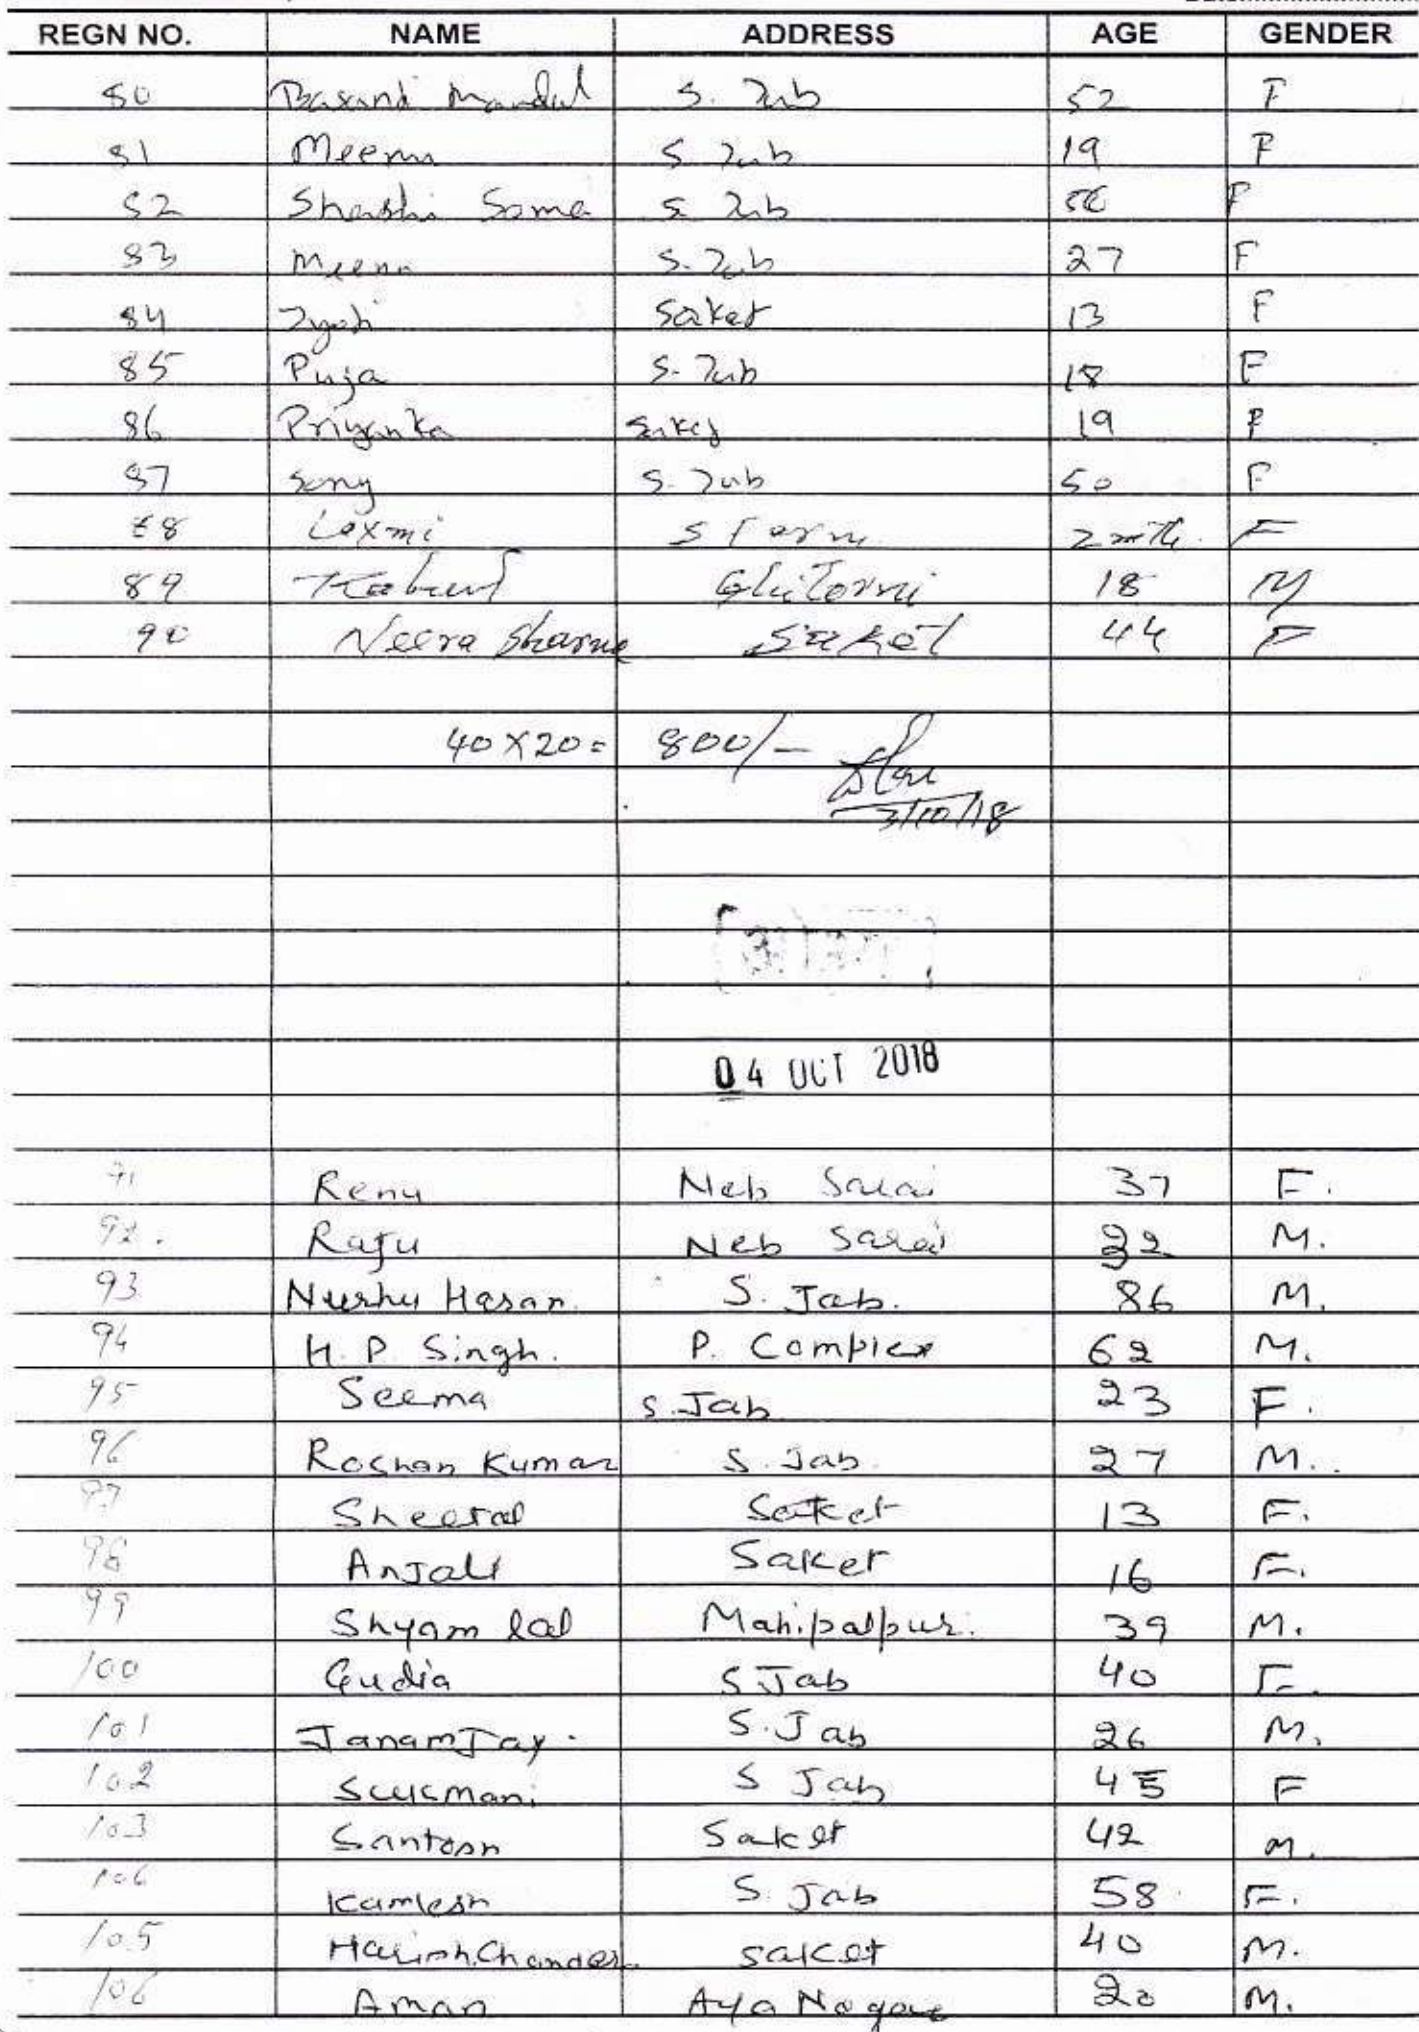 REGN NO. NAME ADDRESS AGE GENDER
80 Basanti Mandal S. Jub 52 F
81 Meena S. Jub 19 F
82 Shashi Soma S Jub F
83 Meena S. Jub 27 F
84 Jyoti Saket 13 F
85 Puja S. Jub 18 F
86 Priyanka Saket 19 F
87 Sony S. Jub 50 F
88 Laxmi S Farm 2 mth. F
89 Ghitorni 18 M
90 Neera Sharma Saket 44 F
40 X 20 = 800/-
3/10/18
04 OCT 2018
91 Renu Neb Sarai 37 F.
92. Raju Neb Sarai 32 M.
93 Hasan. S. Jab. 86 M.
94 H. P Singh. P. Complex 62 M.
95 Seema S. Jab 23 F.
96 Roshan Kumar S. Jab. 27 M..
97 Sheetal Saket 13 F.
98 Anjali Saket 16 F.
99 Shyam lal Mahipalpur. 39 M.
100 Gudia S Jab 40 F.
101 JanamJay. S. Jab 26 M.
102 Sukmani S Jab 45 F
103 Santosh Saket 42 M.
104 Kamlesh S. Jab 58. F.
105 Harish Chander Saket 40 M.
106 Aman Aya Nagar 20 M.